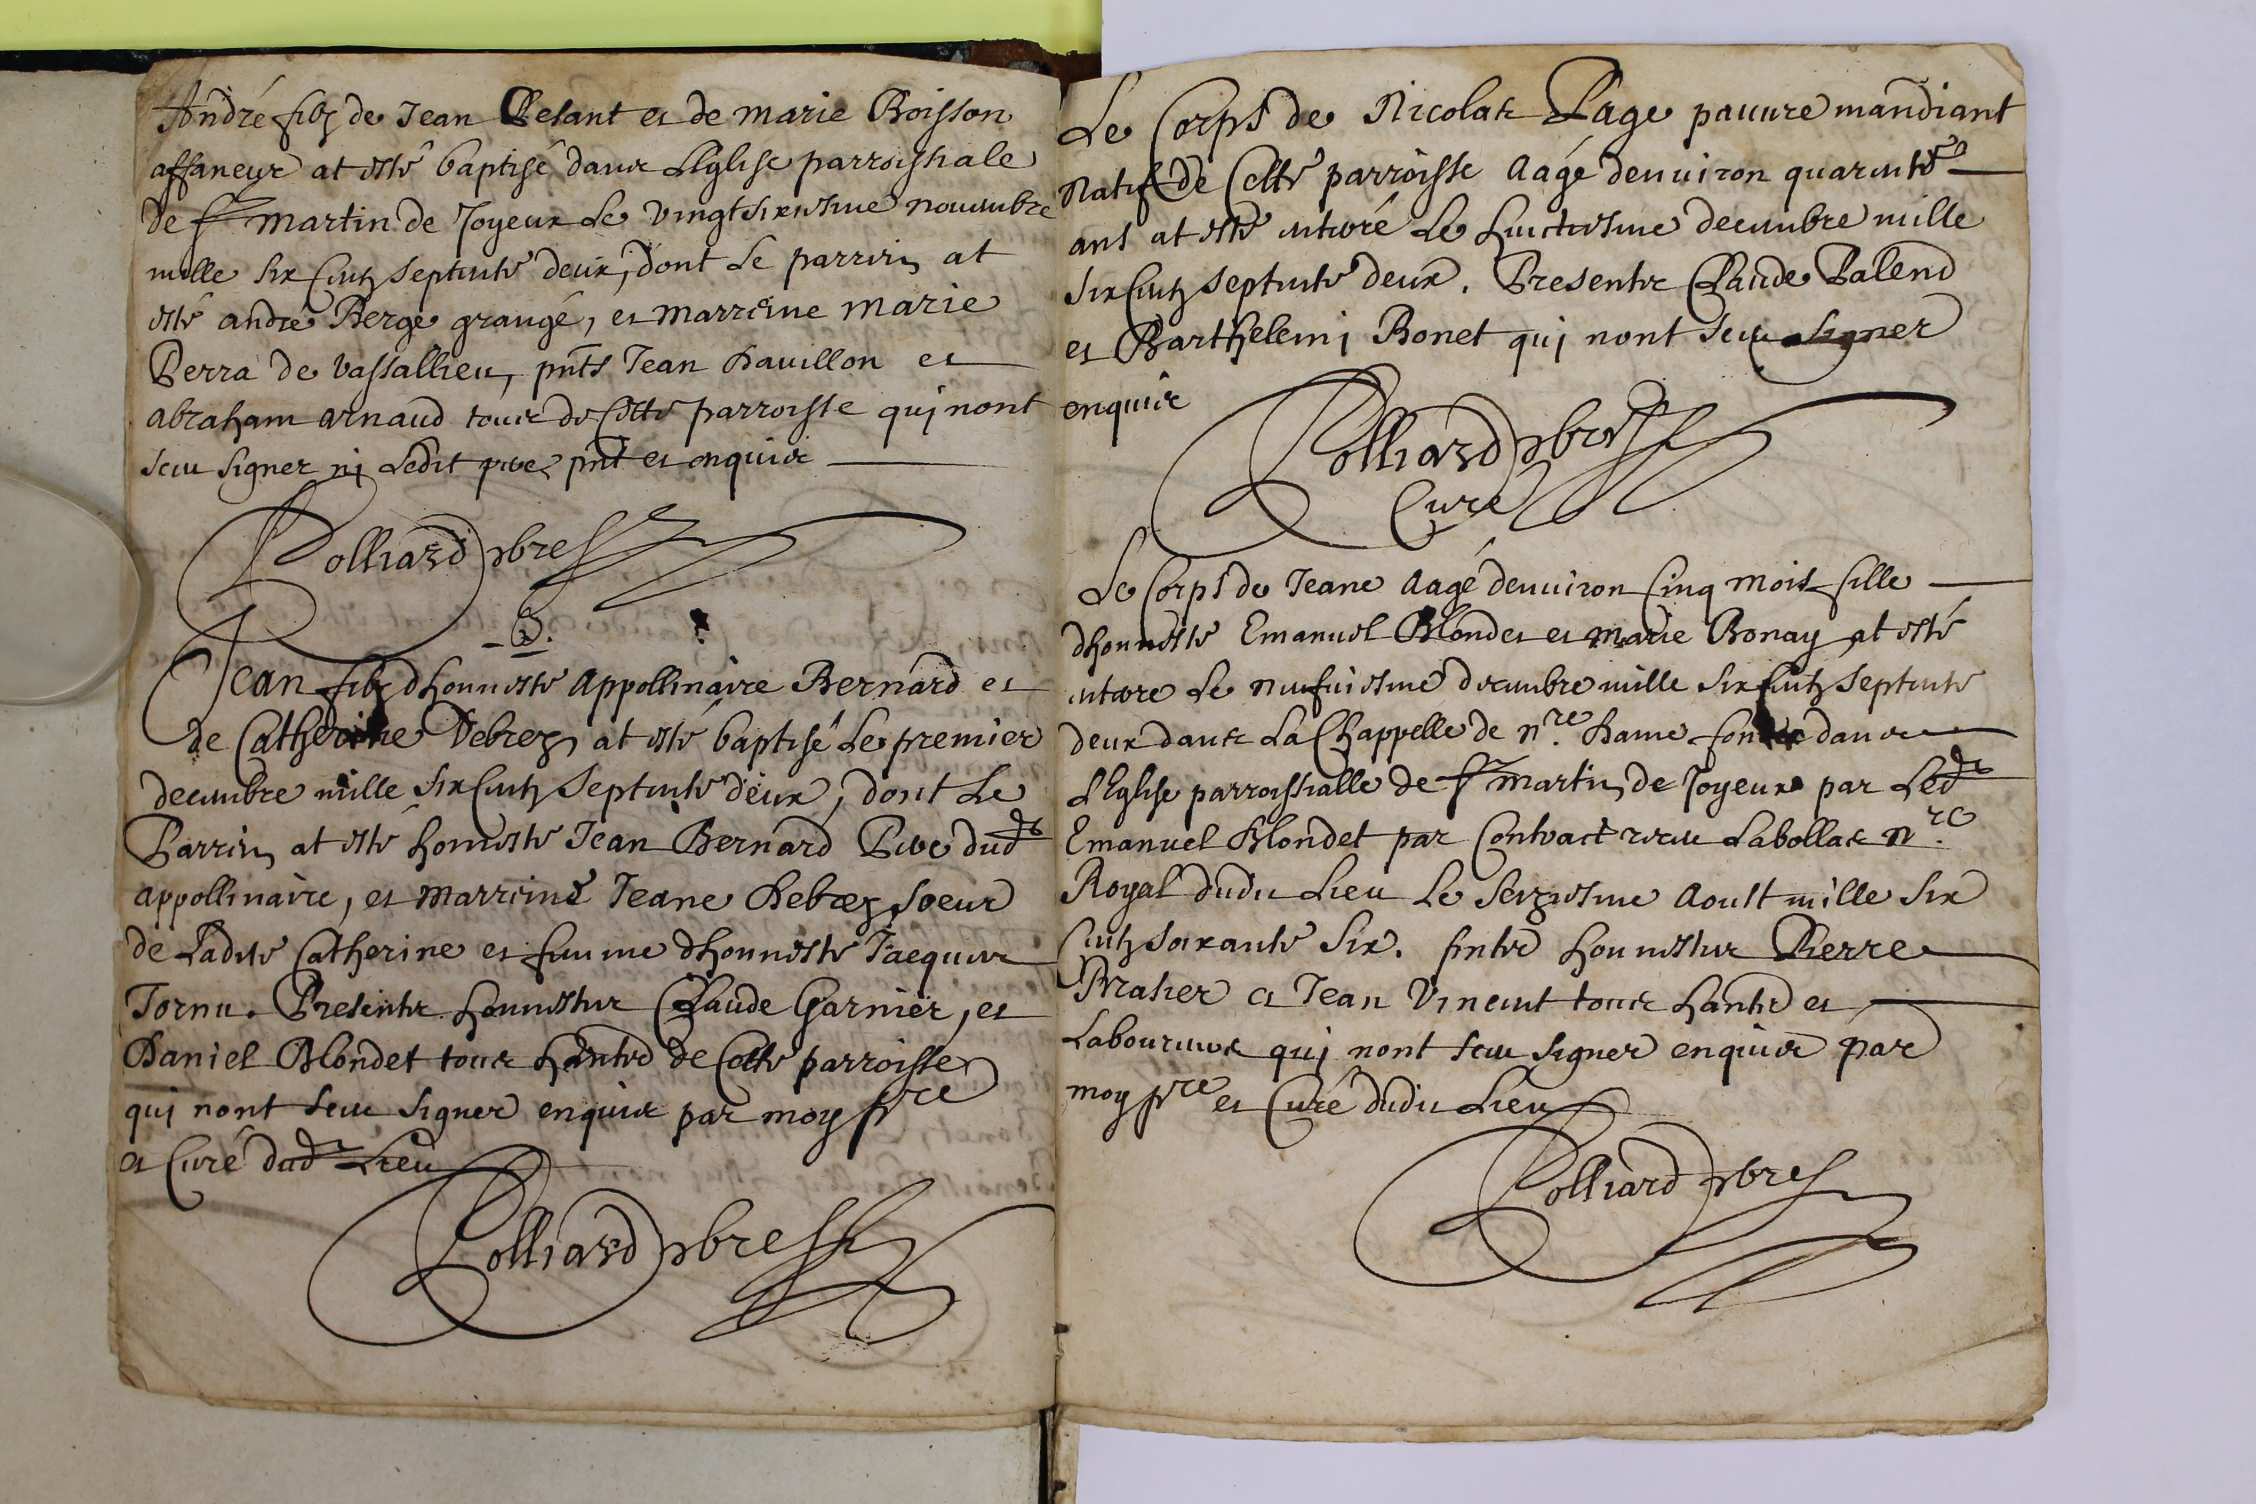 André filz de Jean Pesant et de marie Boisson
affaneur at esté baptisé dans L'Eglise parroissiale
de st martin de Joyeux Le vingtsixiesme nouembre
mille six centz septente deux, dont Le parrin at
esté andre Berge grangé, et marreine marie
Perra de vassallieu, pnts Jean Dauillon et
abraham arnaud tous de Cette parroisse qui nont
sceu signer ni Ledit pere pnt et enquis
Rolliard pbre
B.
Jean filz dhonneste appollinaire Bernard et
de Catherine Debrez at esté baptisé Le premier
decembre mille six centz septente deux, dont Le
Parrin at esté honneste Jean Bernard Pere dudt
appollinaire, et marreine Jeane Debrez soeur
de Ladite Catherine et femme dhonneste Jacques
Tornu. Presents honnestes Claude Garnier, et
Daniel Blondet tous hantz de Cette parroisse
qui nont sceu signer enquis par moy pre
et Curé dudt Lieu
Rolliard pbre
Le Corps de Nicolas Page pauure mandiant
natif de Cette parroisse aagé denuiron quarente
ans at esté enterré Le huictiesme decembre mille
six centz septente deux. Presents Claude Palend
et Barthelemi Bonet qui nont sceu signer
enquis
Rolliard pbre
Curé
Le Corps de Jeane aagé denuiron Cinq mois fille
dhonneste Emanuel Blondet et marie Bonay at esté
enterre Le neufuiesme decembre mille six centz septente
deux dans La Chappelle de nre Dame fondee dans
L'Eglise parroissialle de st martin de Joyeux par Ledt
Emanuel Blondet par Contract receu Labollas nre
Royal dudit Lieu Le seiziesme Aoust mille six
Centz soixante six. pntz honnestes Pierre
et Jean Vincent tous hantz et
Laboureurs qui nont sceu signer enquis par
moy pre et Curé dudit Lieu
Rolliard pbre